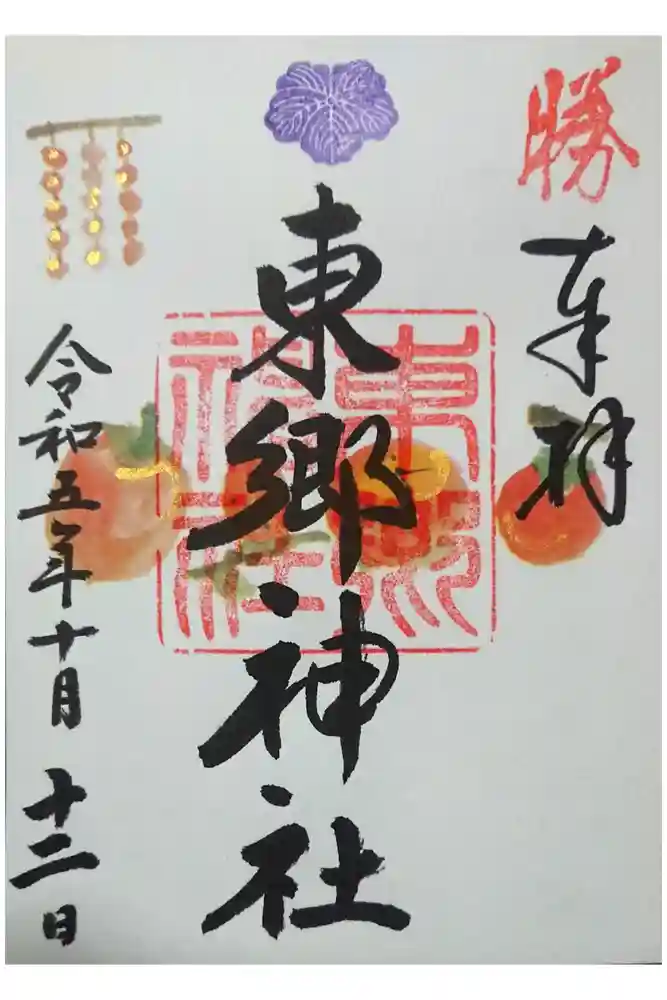 勝
奉拝
東郷神社
東郷神社
令和五年十月十二日